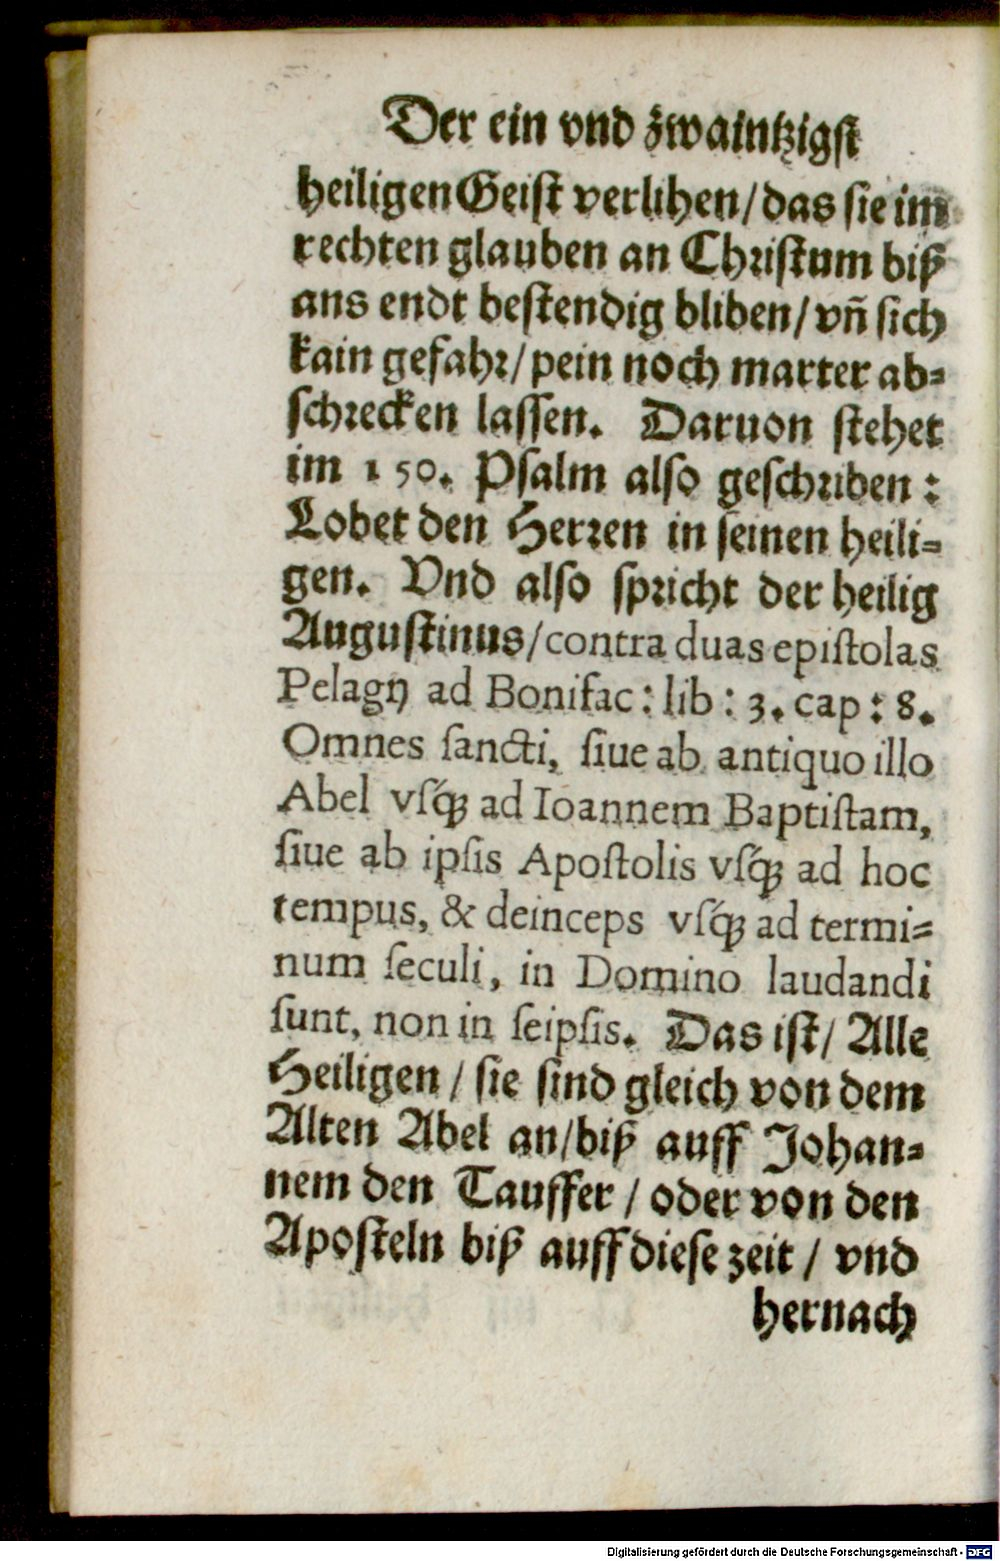 Der ein vnd zwaintzigſt
heiligen Geiſt verlihen/das ſie im
rechten glauben an Chriſtum biß
ans endt beſtendig bliben/vñ ſich
kain gefahr/pein noch marter ab-
ſchrecken laſſen. Daruon ſtehet
im 150. Pſalm alſo geſchriben:
Lobet den Herren in ſeinen heili-
gen. Vnd alſo ſpricht der heilig
Auguſtinus/contra duas epiſtolas
Pelagij ad Bonifac: lib: 3. cap: 8.
Omnes ſancti, ſiue ab antiquo illo
Abel vſq́; ad Ioannem Baptiſtam,
ſiue ab ipſis Apoſtolis vſq́; ad hoc
tempus, & deinceps vſq́; ad termi-
num ſeculi, in Domino laudandi
ſunt, non in ſeipſis. Das iſt/ Alle
Heiligen / ſie ſind gleich von dem
Alten Abel an/biß auff Johan-
nem den Tauffer / oder von den
Apoſteln biß auff dieſe zeit / vnd
hernach
Digitalisierung gefördert durch die Deutsche Forschungsgemeinschaft - DFG